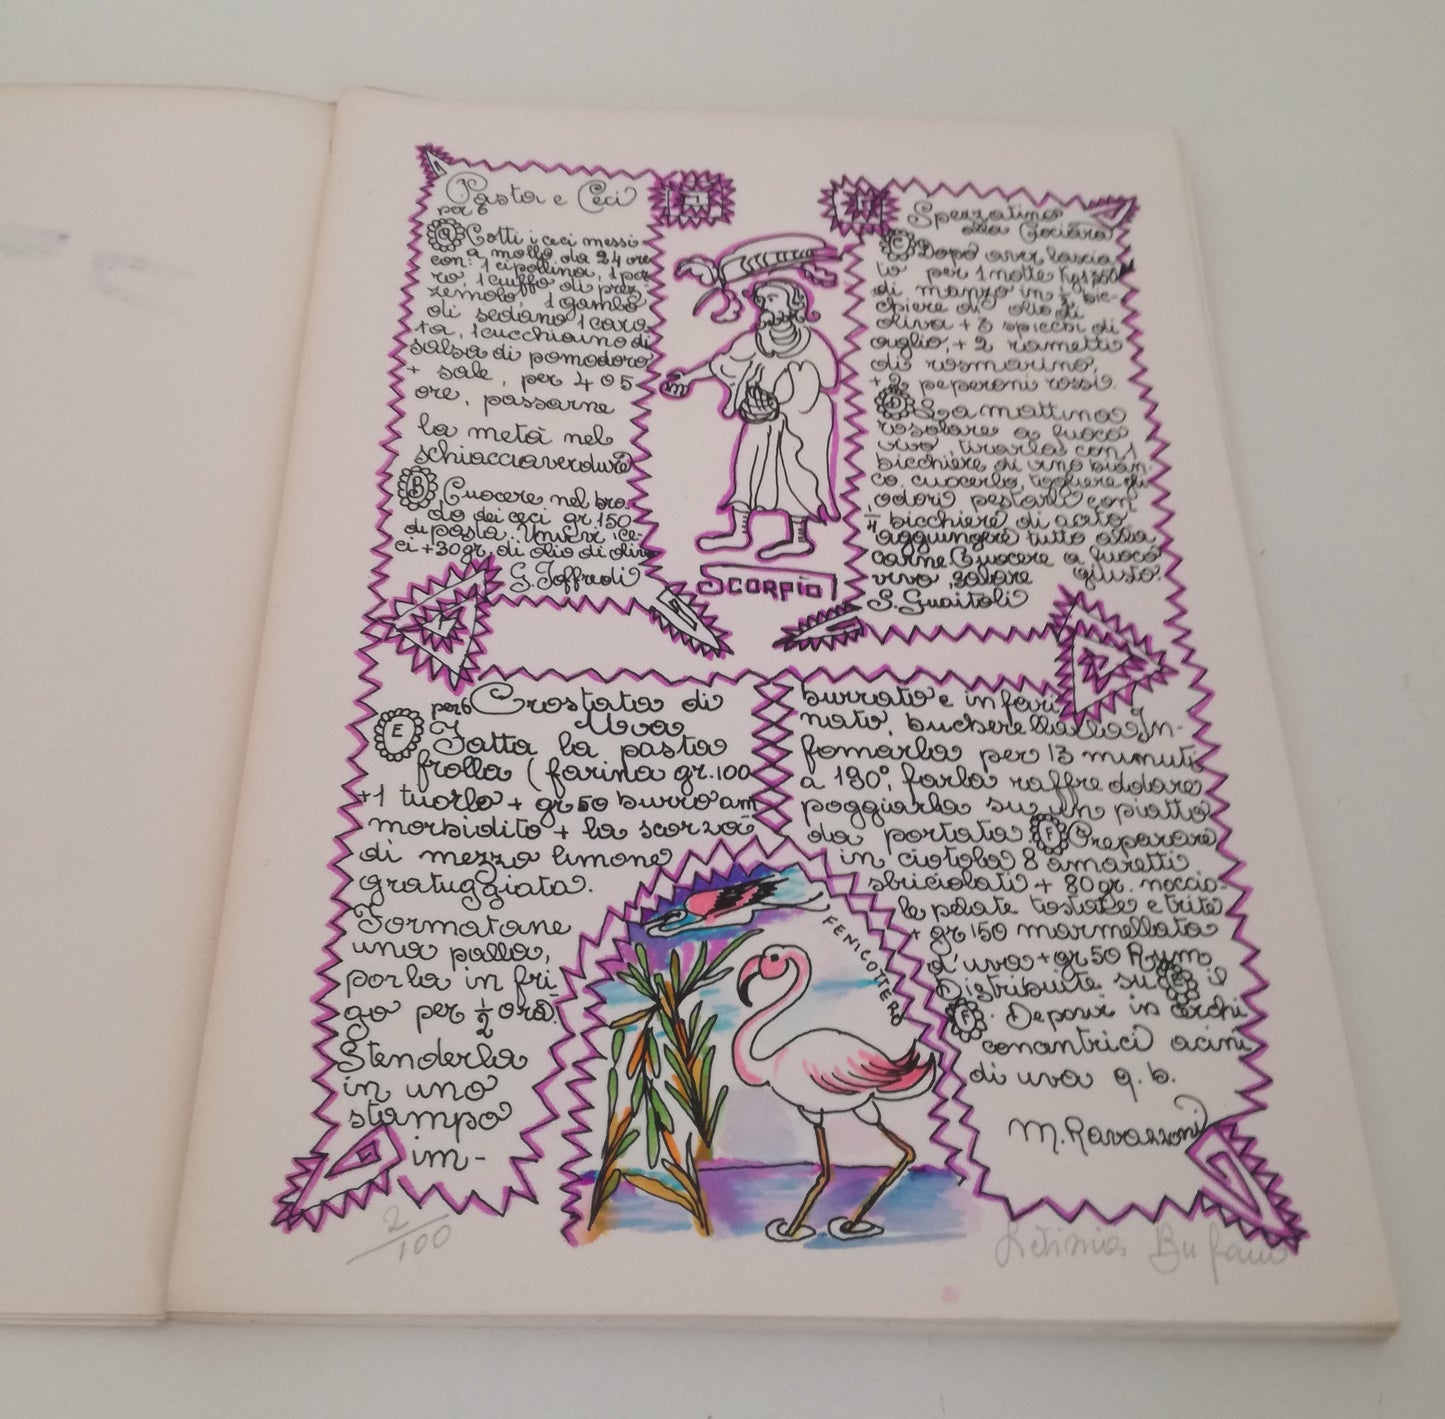 Pasta e Ceci
per 6
A Cotti i ceci messi
a mollo da 24 ore
con: 1 cipollina, 1 po
ro, 1 ciuffo di prez
zemolo, 1 gambo
di sedano 1 caro
ta, 1 cucchiaino di
salsa di pomodoro
+ sale, per 4 o 5
ore, passarne
la metà nel
schiacciaverdure
B Cuocere nel bro
do dei ceci gr. 150
di pasta. Unirvi i ce-
ci + 30 gr. di olio di oliva
G. Joffredi
SCORPIO
Spezzatino
alla Ciociara
C Dopo aver lascia
to per 1 notte Kg
di manzo in ½ bic-
chiere di olio di
oliva + 3 spicchi di
aglio, + 2 rametti
di rosmarino,
+ 2 peperoni rossi.
D La mattina
rosolare a fuoco
vivo tirarla con 1
bicchiere di vino bian
co, cuocerlo, togliere gli
odori pestarli con
¼ bicchiere di aceto
aggiungere tutto alla
carne Cuocere a fuoco
vivo, salare giusto.
S. Guaitoli
per 6 Crostata di
Uva
E Fatta la pasta
frolla (farina gr. 100
+ 1 tuorlo + gr 50 burro am
morbidito + la scorza
di mezzo limone
gratuggiata.
Formatane
una palla,
porla in fri
go per ½ ora.
Stenderla
in uno
stampo
im-
burrato e infari
nato, bucherellarla In-
fornarla per 13 minuti
a 190°, farla raffreddare
poggiarla su un piatto
da portata. F Preparare
in ciotola 8 amaretti
sbriciolati + 80 gr. noccio-
le pelate tostate e trite
+ gr 150 marmellata
d'uva + gr 50 Rum
Distribuite su E il
F. Deporvi in cerchi
conantrici acini
di uva q. b.
M. Ravazzoni
FENICOTTERO
2/100
Letizia Bufano